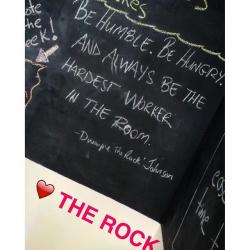 BE HUMBLE. BE HUNGRY.
AND ALWAYS BE THE
HARDEST WORKER
IN THE ROOM.
-Dwayne "The Rock" Johnson
THE ROCK
the